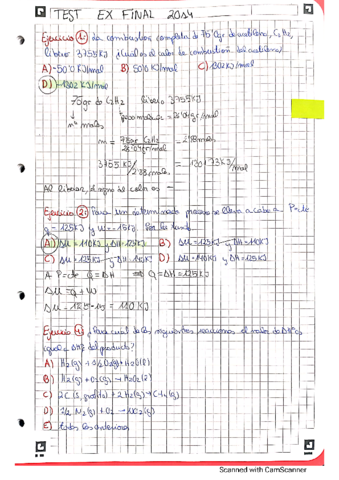 TEST EX FINAL 2014
Ejercicio 1: La combustión completa de 75gr de acetileno, C2H2,
libera 3755KJ ¿Cuál es el calor de combustión del acetileno?
A) -500 KJ/mol B) 500 KJ/mol C) 1302 KJ/mol
D) -1302 KJ/mol
75gr de C2H2 libera 3755KJ
nº moles
m = 75gr C2H2
3755 KJ
KJ/mol
Al liberar, el signo del calor es -
Ejercicio 2: Para un determinado proceso se lleva a cabo a P=cte
q = 125KJ y W = -15KJ. Por lo tanto
A) ΔU = 110KJ y ΔH = 125KJ B) ΔU = 125KJ y ΔH = 110KJ
C) ΔU = 125KJ y ΔH D) ΔU = y ΔH = 125KJ
A P=cte Q = ΔH → Q = ΔH = 125KJ
ΔU = Q + W
ΔU = 125 - 15 = 110 KJ
Ejercicio 4: ¿Para cuál de las siguientes reacciones el valor de ΔHº es
igual a del producto?
A) H2(g) + 1/2 O2(g) → H2O(l)
B) H2(g) + O2(g) → H2O2(l)
C) 2C(s, grafito) + 2H2(g) → C2H4(g)
D) 1/2 N2(g) + O2 → NO2(g)
E) Todas las anteriores
Scanned with CamScanner